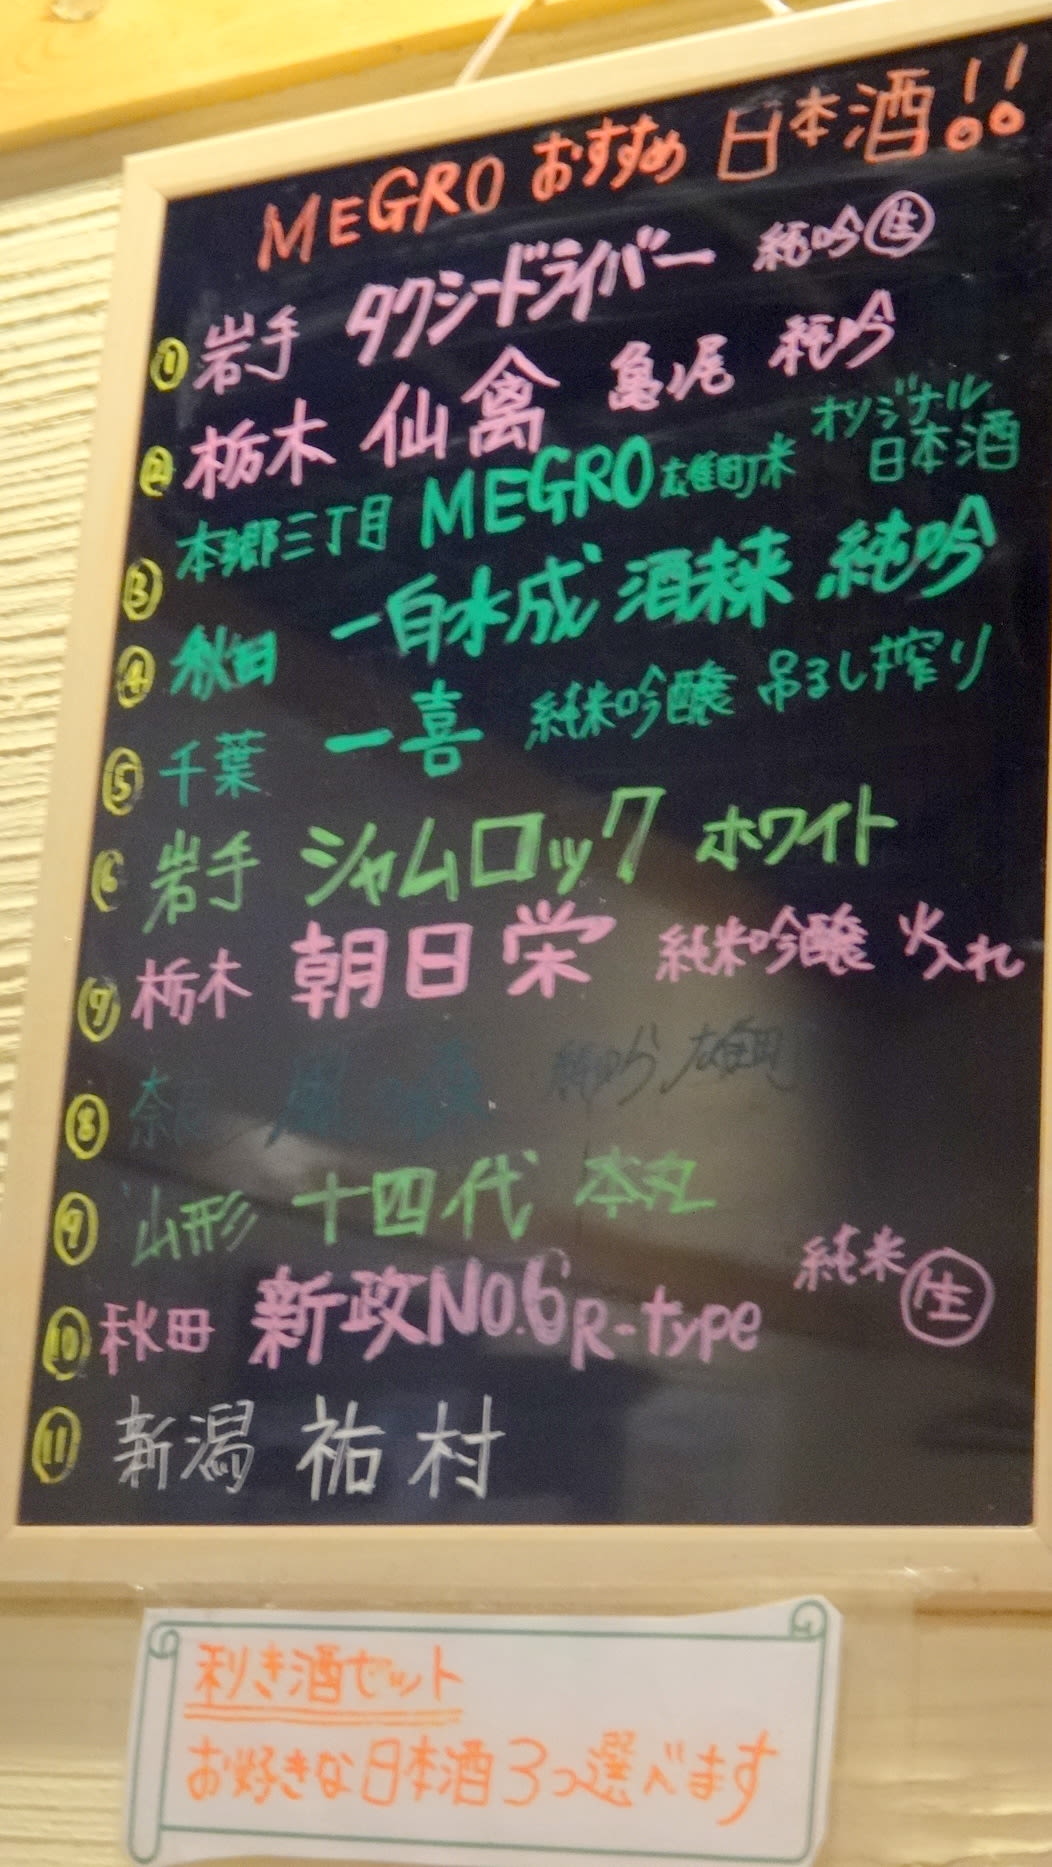 MEGRO おすすめ 日本酒!!
① 岩手 タクシードライバー 純吟 生
② 栃木 仙禽 亀ノ尾 純吟
③ 本郷三丁目 MEGRO 雄町米 オリジナル日本酒
④ 秋田 一白水成 酒未来 純吟
⑤ 千葉 一喜 純米吟醸 吊るし搾り
⑥ 岩手 シャムロック ホワイト
⑦ 栃木 朝日栄 純米吟醸 火入れ
⑧ 純吟 雄町
⑨ 山形 十四代 本丸
⑩ 秋田 新政No.6 R-type 純米 生
⑪ 新潟 祐村
利き酒セット
お好きな日本酒3つ選べます